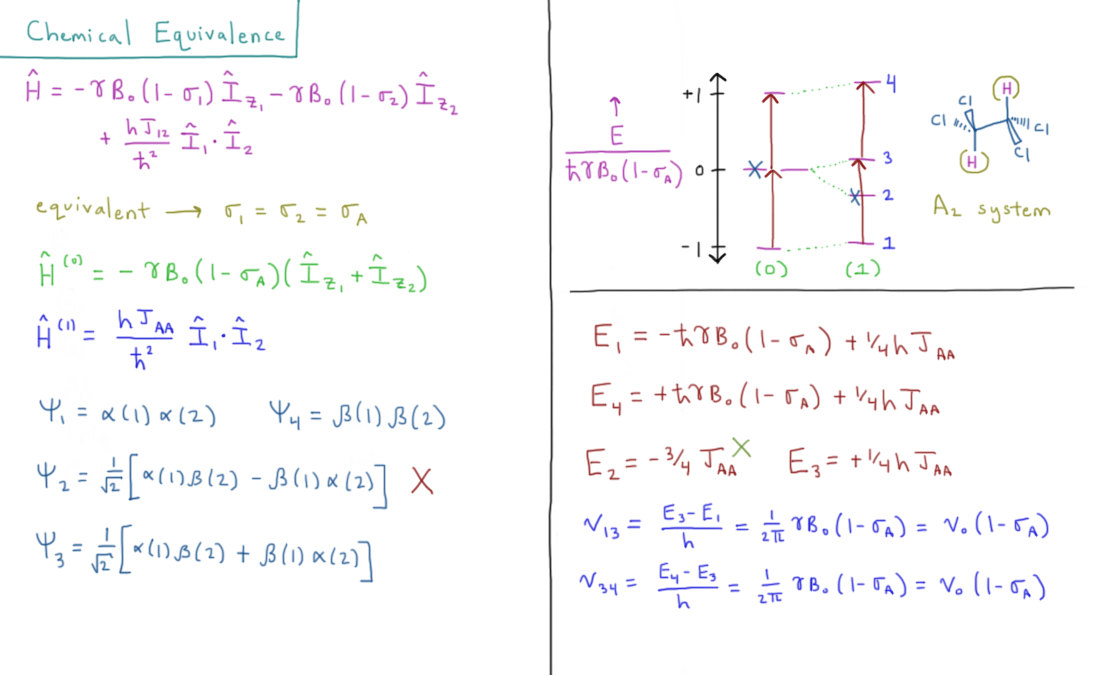 Chemical Equivalence
Ĥ = -γB₀(1-σ₁)Î_z₁ - γB₀(1-σ₂)Î_z₂
+ hJ₁₂/ħ² Î₁·Î₂
equivalent → σ₁ = σ₂ = σ_A
Ĥ⁽⁰⁾ = -γB₀(1-σ_A)(Î_z₁ + Î_z₂)
Ĥ⁽¹⁾ = hJ_AA/ħ² Î₁·Î₂
Ψ₁ = α(1)α(2) Ψ₄ = β(1)β(2)
Ψ₂ = 1/√2 [α(1)β(2) - β(1)α(2)] X
Ψ₃ = 1/√2 [α(1)β(2) + β(1)α(2)]
↑
E/ħγB₀(1-σ_A)
+1
0
-1
4
3
2
1
(0) (1)
H
Cl
Cl
Cl
Cl
H
A₂ system
E₁ = -ħγB₀(1-σ_A) + ¼hJ_AA
E₄ = +ħγB₀(1-σ_A) + ¼hJ_AA
E₂ = -¾ J_AA X E₃ = +¼hJ_AA
ν₁₃ = (E₃-E₁)/h = 1/2π γB₀(1-σ_A) = ν₀(1-σ_A)
ν₃₄ = (E₄-E₃)/h = 1/2π γB₀(1-σ_A) = ν₀(1-σ_A)